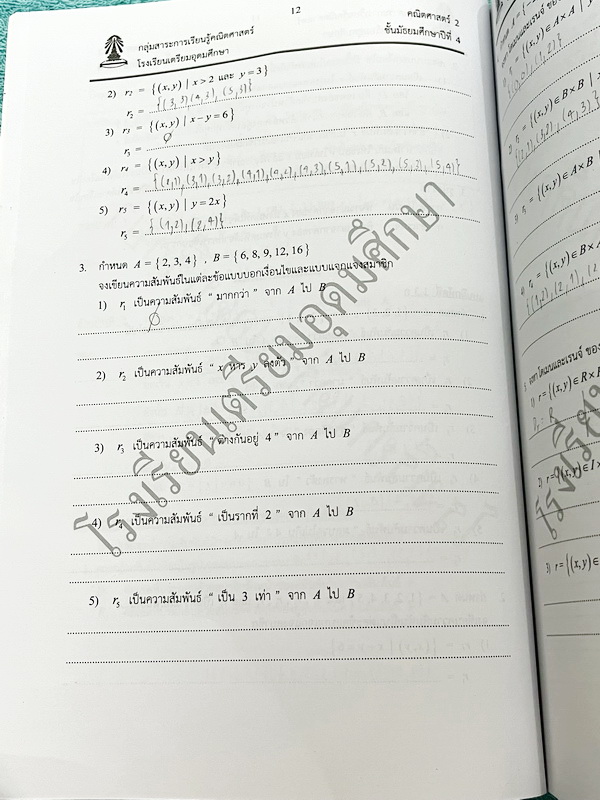 12
กลุ่มสาระการเรียนรู้คณิตศาสตร์
โรงเรียนเตรียมอุดมศึกษา
คณิตศาสตร์ 2
ชั้นมัธยมศึกษาปีที่ 4
2) r₂ = {(x,y) | x > 2 และ y = 3}
r₂ = {(3,3),(4,3),(5,3)}
3) r₃ = {(x,y) | x − y = 6}
r₃ = ∅
4) r₄ = {(x,y) | x > y}
r₄ = {(2,1),(3,1),(3,2),(4,1),(4,2),(4,3),(5,1),(5,2),(5,3),(5,4)}
5) r₅ = {(x,y) | y = 2x}
r₅ = {(1,2),(2,4)}
3. กำหนด A = {2, 3, 4} , B = {6, 8, 9, 12, 16}
จงเขียนความสัมพันธ์ในแต่ละข้อแบบบอกเงื่อนไขและแบบแจกแจงสมาชิก
1) r₁ เป็นความสัมพันธ์ “ มากกว่า ” จาก A ไป B
∅
2) r₂ เป็นความสัมพันธ์ “ x หาร y ลงตัว ” จาก A ไป B
3) r₃ เป็นความสัมพันธ์ “ ต่างกันอยู่ 4 ” จาก A ไป B
4) r₄ เป็นความสัมพันธ์ “ เป็นรากที่ 2 ” จาก A ไป B
5) r₅ เป็นความสัมพันธ์ “ เป็น 3 เท่า ” จาก A ไป B
โรงเรียนเตรียมอุดมศึกษา